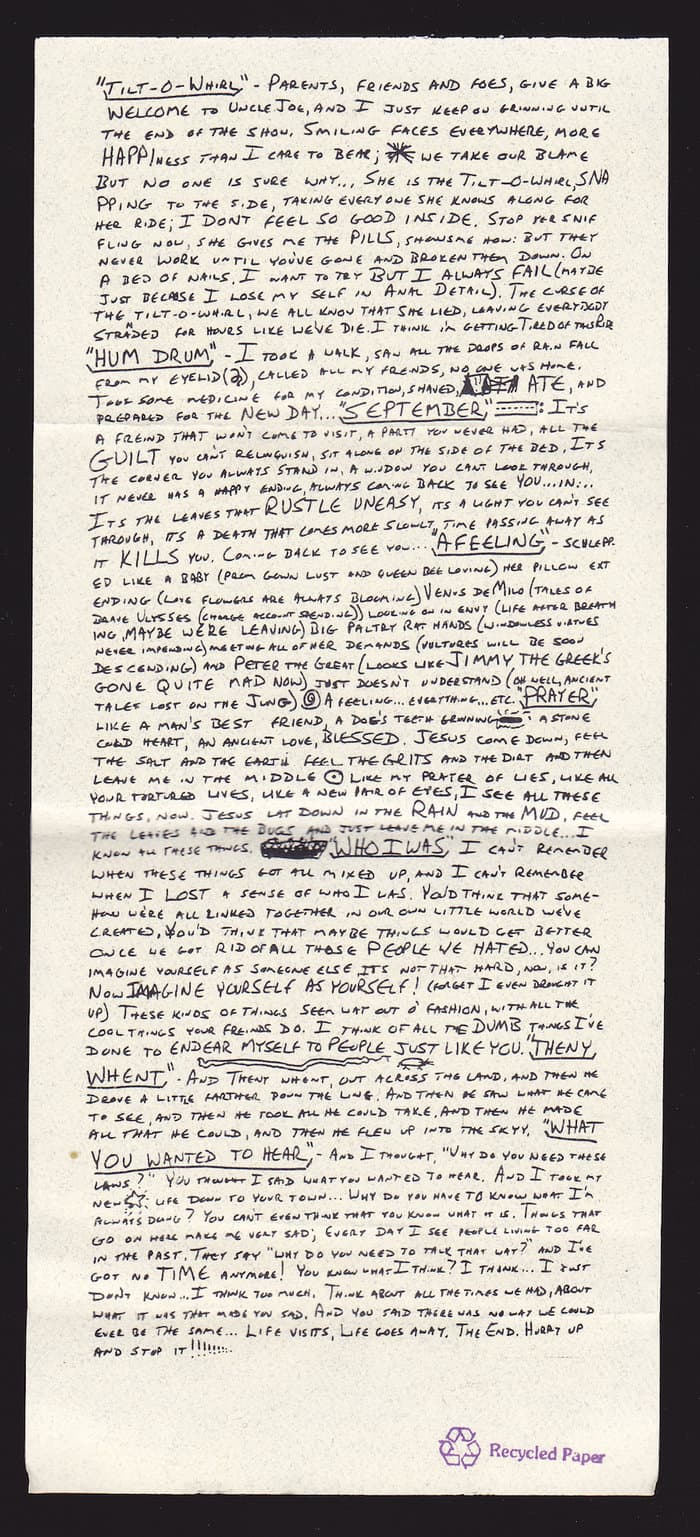 "TILT-O-WHIRL" - PARENTS, FRIENDS AND FOES, GIVE A BIG
WELCOME TO UNCLE JOE, AND I JUST KEEP ON GRINNING UNTIL
THE END OF THE SHOW. SMILING FACES EVERYWHERE, MORE
HAPPINESS THAN I CARE TO BEAR; WE TAKE OUR BLAME
BUT NO ONE IS SURE WHY... SHE IS THE TILT-O-WHIRL, SNA
PPING TO THE SIDE, TAKING EVERYONE SHE KNOWS ALONG FOR
HER RIDE; I DON'T FEEL SO GOOD INSIDE. STOP YER SNIF
FLING NOW, SHE GIVES ME THE PILLS, SHOWS ME HOW: BUT THEY
NEVER WORK UNTIL YOU'VE GONE AND BROKEN THEM DOWN. ON
A BED OF NAILS. I WANT TO TRY BUT I ALWAYS FAIL (MAYBE
JUST BECAUSE I LOSE MY SELF IN ANAL DETAIL). THE CURSE OF
THE TILT-O-WHIRL, WE ALL KNOW THAT SHE LIED, LEAVING EVERYBODY
STRADED FOR HOURS LIKE WE'VE DIE. I THINK I'M GETTING TIRED OF THIS RIDE
"HUM DRUM" - I TOOK A WALK, SAW ALL THE DROPS OF RAIN FALL
FROM MY EYELID(S), CALLED ALL MY FREINDS, NO ONE WAS HOME.
TOOK SOME MEDICINE FOR MY CONDITION, SHAVED, ATE, AND
PREPARED FOR THE NEW DAY... "SEPTEMBER" : IT'S
A FREIND THAT WON'T COME TO VISIT, A PARTY YOU NEVER HAD, ALL THE
GUILT YOU CAN'T RELINQUISH, SIT ALONE ON THE SIDE OF THE BED. IT'S
THE CORNER YOU ALWAYS STAND IN, A WINDOW YOU CANT LOOK THROUGH,
IT NEVER HAS A HAPPY ENDING, ALWAYS COMING BACK TO SEE YOU...IN:..
IT'S THE LEAVES THAT RUSTLE UNEASY, ITS A LIGHT YOU CAN'T SEE
THROUGH, IT'S A DEATH THAT COMES MORE SLOWLY, TIME PASSING AWAY AS
IT KILLS YOU. COMING BACK TO SEE YOU... "A FEELING" - SCHLEPP-
ED LIKE A BABY (PROM GOWN LUST AND QUEEN BEE LOVING) HER PILLOW EXT
ENDING (LOVE FLOWERS ARE ALWAYS BLOOMING) VENUS DE MILO (TALES OF
BRAVE ULYSSES (CHARGE ACCOUNT SPENDING)) LOOKING ON IN ENVY (LIFE AFTER BREATH
ING, MAYBE WE'RE LEAVING) BIG PALTRY RAT HANDS (WINDOWLESS VIRTUES
NEVER IMPENDING) MEETING ALL OF HER DEMANDS (VULTURES WILL BE SOON
DESCENDING) AND PETER THE GREAT (LOOKS LIKE JIMMY THE GREEK'S
GONE QUITE MAD NOW) JUST DOESN'T UNDERSTAND (OH WELL, ANCIENT
TALES LOST ON THE JUNG) A FEELING... EVERYTHING... ETC. "PRAYER"
LIKE A MAN'S BEST FRIEND, A DOG'S TEETH GRINNING A STONE
COLD HEART, AN ANCIENT LOVE, BLESSED. JESUS COME DOWN, FEEL
THE SALT AND THE EARTH FEEL THE GRITS AND THE DIRT AND THEN
LEAVE ME IN THE MIDDLE LIKE MY PRAYER OF LIES, LIKE ALL
YOUR TORTURED LIVES, LIKE A NEW PAIR OF EYES, I SEE ALL THESE
THINGS, NOW. JESUS LAY DOWN IN THE RAIN AND THE MUD, FEEL
THE LEAVES AND THE BUGS AND JUST LEAVE ME IN THE MIDDLE... I
KNOW ALL THESE THINGS. "WHO I WAS" I CAN'T REMEMBER
WHEN THESE THINGS GOT ALL MIXED UP, AND I CAN'T REMEMBER
WHEN I LOST A SENSE OF WHO I WAS. YOU'D THINK THAT SOME-
HOW WE'RE ALL LINKED TOGETHER IN OUR OWN LITTLE WORLD WE'VE
CREATED, YOU'D THINK THAT MAYBE THINGS WOULD GET BETTER
ONCE WE GOT RID OF ALL THOSE PEOPLE WE HATED... YOU CAN
IMAGINE YOURSELF AS SOMEONE ELSE, ITS NOT THAT HARD, NOW, IS IT?
NOW IMAGINE YOURSELF AS YOURSELF! (FORGET I EVEN BROUGHT IT
UP) THESE KINDS OF THINGS SEEM WAY OUT O' FASHION, WITH ALL THE
COOL THINGS YOUR FREINDS DO. I THINK OF ALL THE DUMB THINGS I'VE
DONE TO ENDEAR MYSELF TO PEOPLE JUST LIKE YOU. "THENY
WHENT" - AND THENY WHENT, OUT ACROSS THE LAND, AND THEN HE
DROVE A LITTLE FARTHER DOWN THE LINE. AND THEN HE SAW WHAT HE CAME
TO SEE, AND THEN HE TOOK ALL HE COULD TAKE, AND THEN HE MADE
ALL THAT HE COULD, AND THEN HE FLEW UP INTO THE SKYY. "WHAT
YOU WANTED TO HEAR" - AND I THOUGHT, "WHY DO YOU NEED THESE
LAWS?" YOU THOUGHT I SAID WHAT YOU WANTED TO HEAR. AND I TOOK MY
NEW LIFE DOWN TO YOUR TOWN... WHY DO YOU HAVE TO KNOW WHAT I'M
ALWAYS DOING? YOU CAN'T EVEN THINK THAT YOU KNOW WHAT IT IS. THINGS THAT
GO ON HERE MAKE ME VERY SAD; EVERY DAY I SEE PEOPLE LIVING TOO FAR
IN THE PAST. THEY SAY "WHY DO YOU NEED TO TALK THAT WAY?" AND I'VE
GOT NO TIME ANYMORE! YOU KNOW WHAT I THINK? I THINK... I JUST
DON'T KNOW... I THINK TOO MUCH. THINK ABOUT ALL THE TIMES WE HAD, ABOUT
WHAT IT WAS THAT MADE YOU SAD. AND YOU SAID THERE WAS NO WAY WE COULD
EVER BE THE SAME... LIFE VISITS, LIFE GOES AWAY. THE END. HURRY UP
AND STOP IT!!!!!!....
Recycled Paper